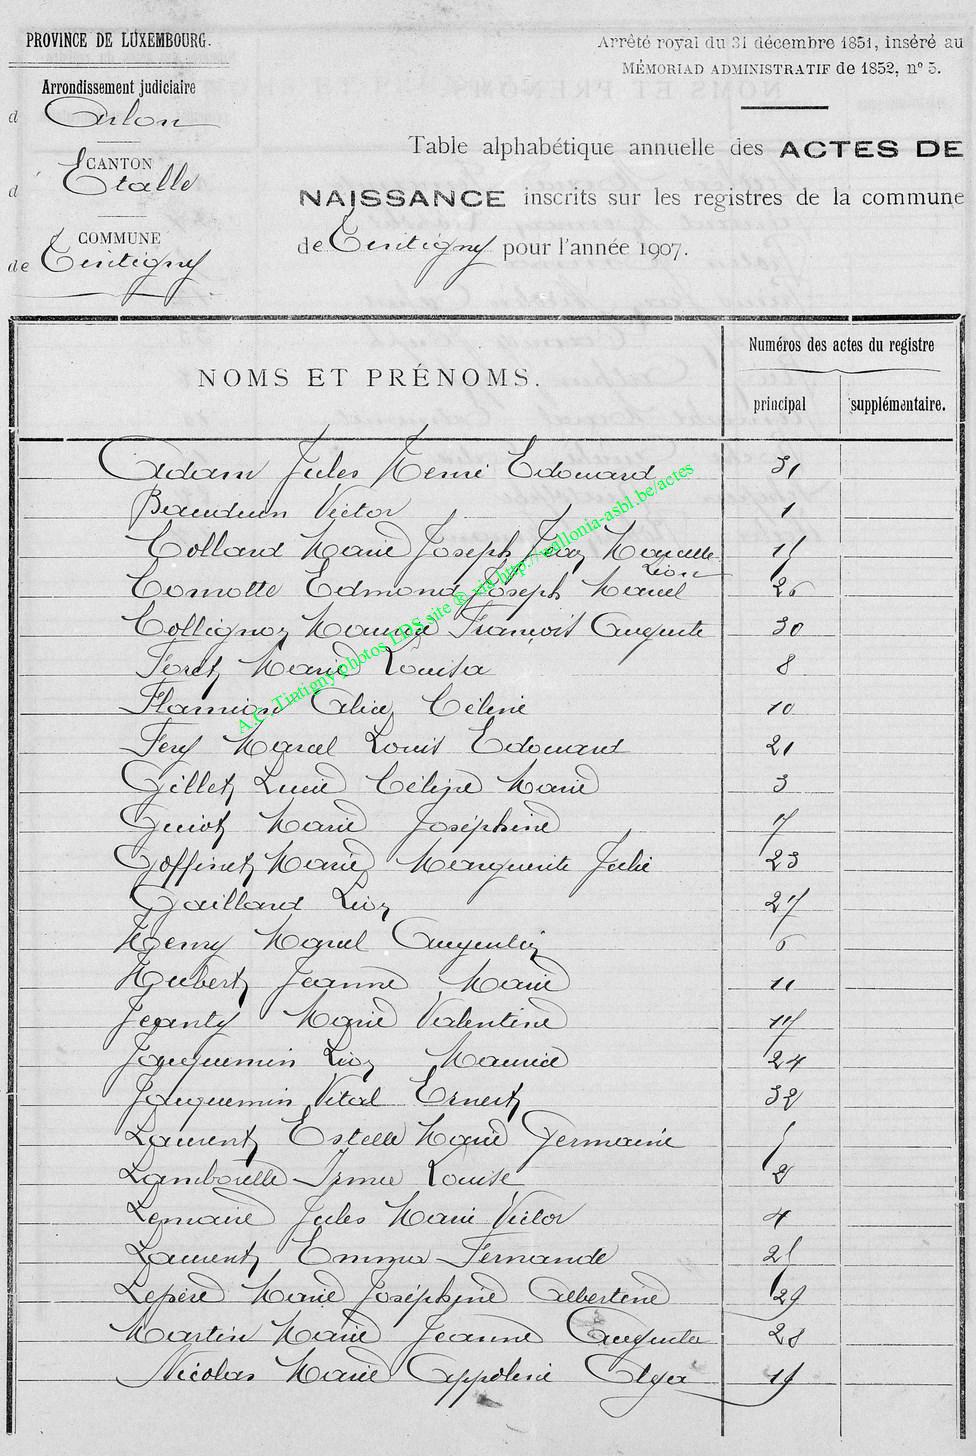 PROVINCE DE LUXEMBOURG.
Arrondissement judiciaire
d Arlon
CANTON
d' Etalle
COMMUNE
de Tintigny
Arrêté royal du 31 décembre 1851, inséré au
MÉMORIAD ADMINISTRATIF de 1852, n° 5.
Table alphabétique annuelle des ACTES DE
NAISSANCE inscrits sur les registres de la commune
de Tintigny pour l'année 1907.
NOMS ET PRÉNOMS.
Numéros des actes du registre
principal
supplémentaire.
Adam Jules Henri Edouard 31
Bauduin Victor 1
Collard Marie Joseph Marcelle
Léon
Comotte Edmond Joseph Marcel 26
Collignon François Auguste 30
Foret Marie Louisa 8
Flamion Alice Céline 10
Fery Marcel Louis Edouard 21
Gillet Lucie Céline Marie 3
Guiot Marie Joséphine 7
Goffinet Marie Marguerite Julie 23
Gaillard Léon 27
Henry Marcel Augustin 6
Hubert Jeanne Marie 11
Jeanty Marie Valentine 17
Jacquemin Léon Maurice 24
Jacquemin Vital Ernest 32
Laurent Estelle Marie Germaine 5
Lamborelle Irma Louise 2
Lemaire Jules Marie Victor 4
Laurent Emma Fernande 25
Lepère Marie Joséphine Albertine 29
Martin Marie Jeanne Augusta 28
Nicolas Marie Appoline Olga
A.C. Tintigny photos LDS site ® via http://wallonia-asbl.be/actes